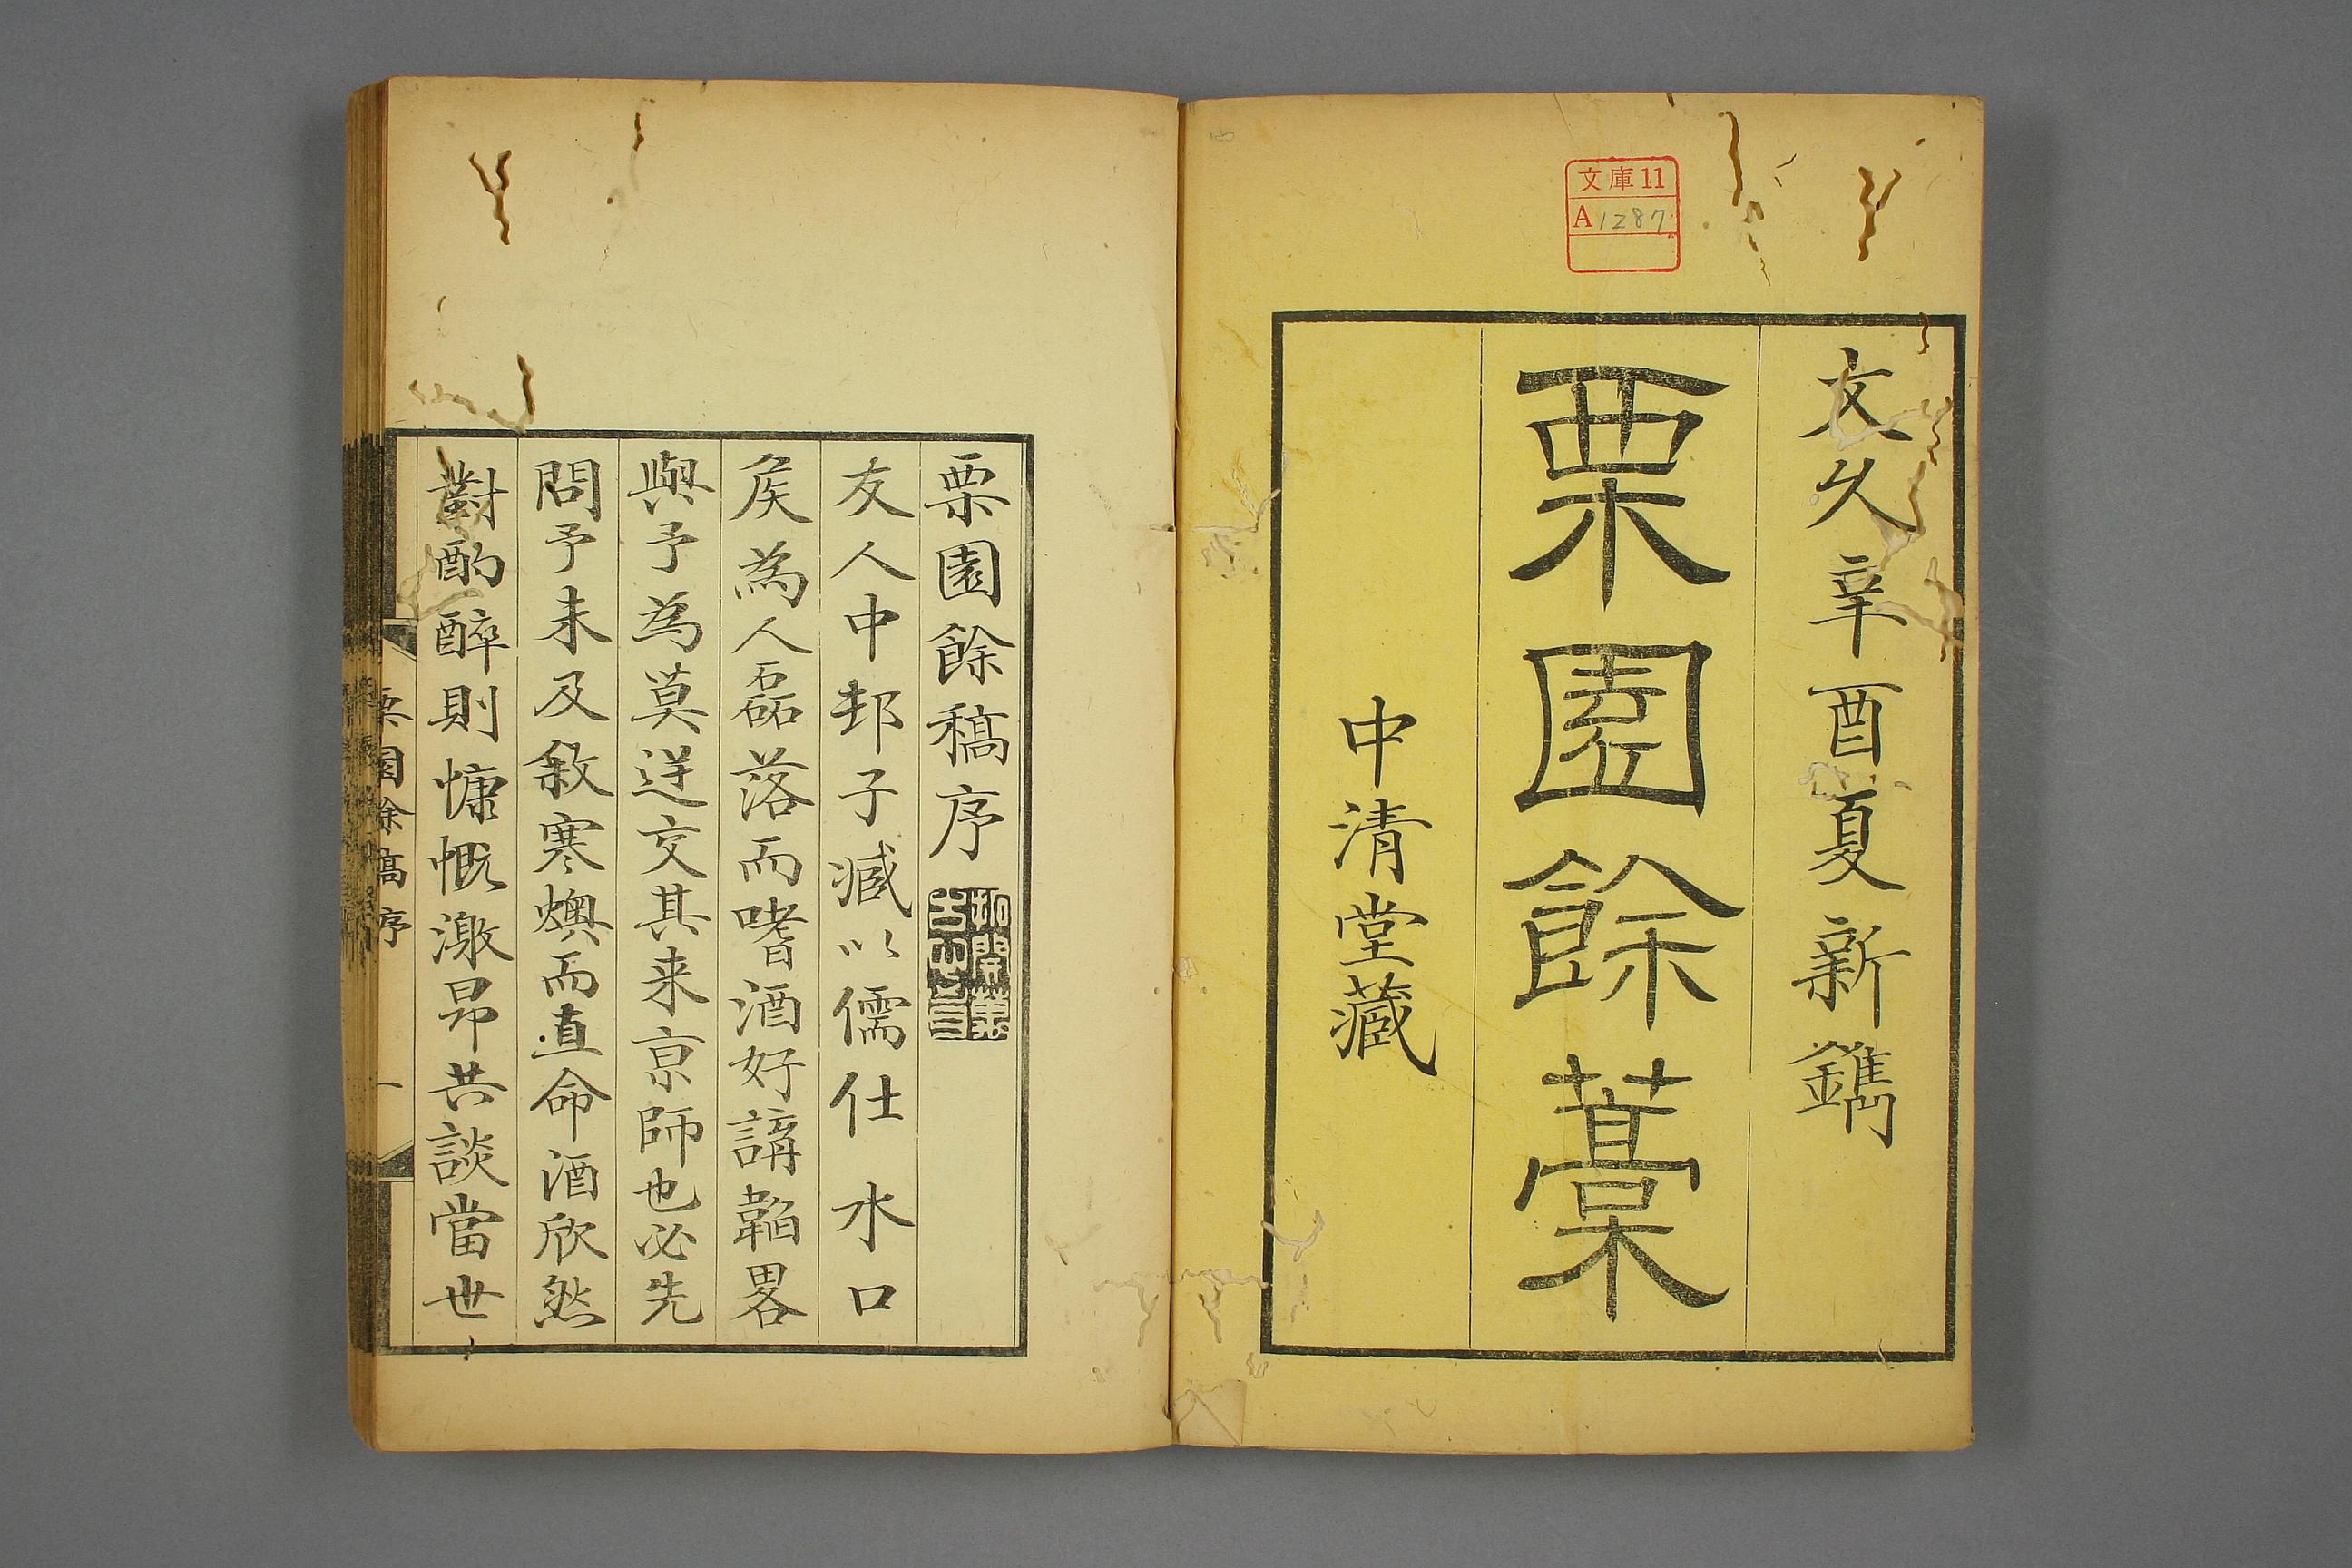 文庫11
A1287
文久辛酉夏新鐫
栗園餘藁
中清堂藏
栗園餘稿序
友人中邨子臧以儒仕水口
矦為人磊落而嗜酒好講韜畧
與予為莫逆交其来亰師也必先
問予未及敘寒燠而直命酒欣然
對酌醉則慷慨激昂共談當世
栗園餘稿序
一